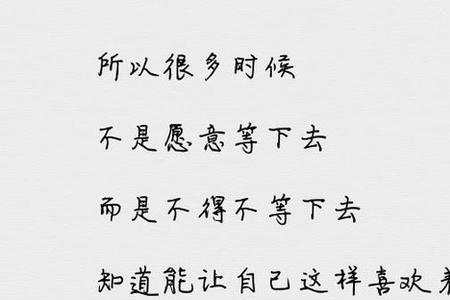 所以很多时候
不是愿意等下去
而是不得不等下去
知道能让自己这样喜欢着